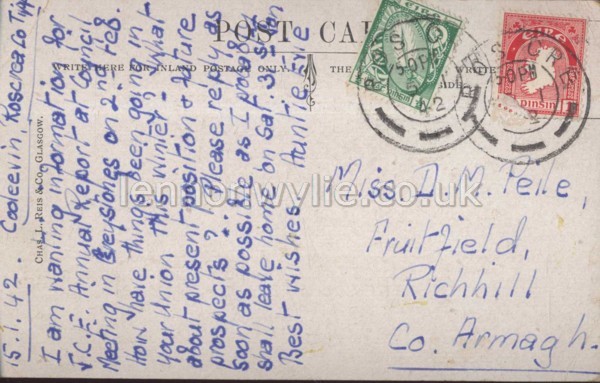 POST CARD
WRITE HERE FOR INLAND POSTAGE ONLY
THE
CHAS. L. REIS & CO., GLASGOW.
15.1.42. Cooleevin, Roscrea Co Tipp
I am wanting information for
J.C.F. Annual Report at Council
Meeting in Greystones on 2nd Feb.
How have things been going in
your Union this winter - & what
about present position & future
prospects? Please reply as
soon as possible as I probably
shall leave home on Sat. 31st Jan
Best wishes. Auntie Evie
Miss. D. M. Pelle,
Fruitfield,
Richhill
Co. Armagh.
ROS CRE
5-0 PM
42
ROS CRE
5-0 PM
EIRE
PINSIN
lennonwylie.co.uk